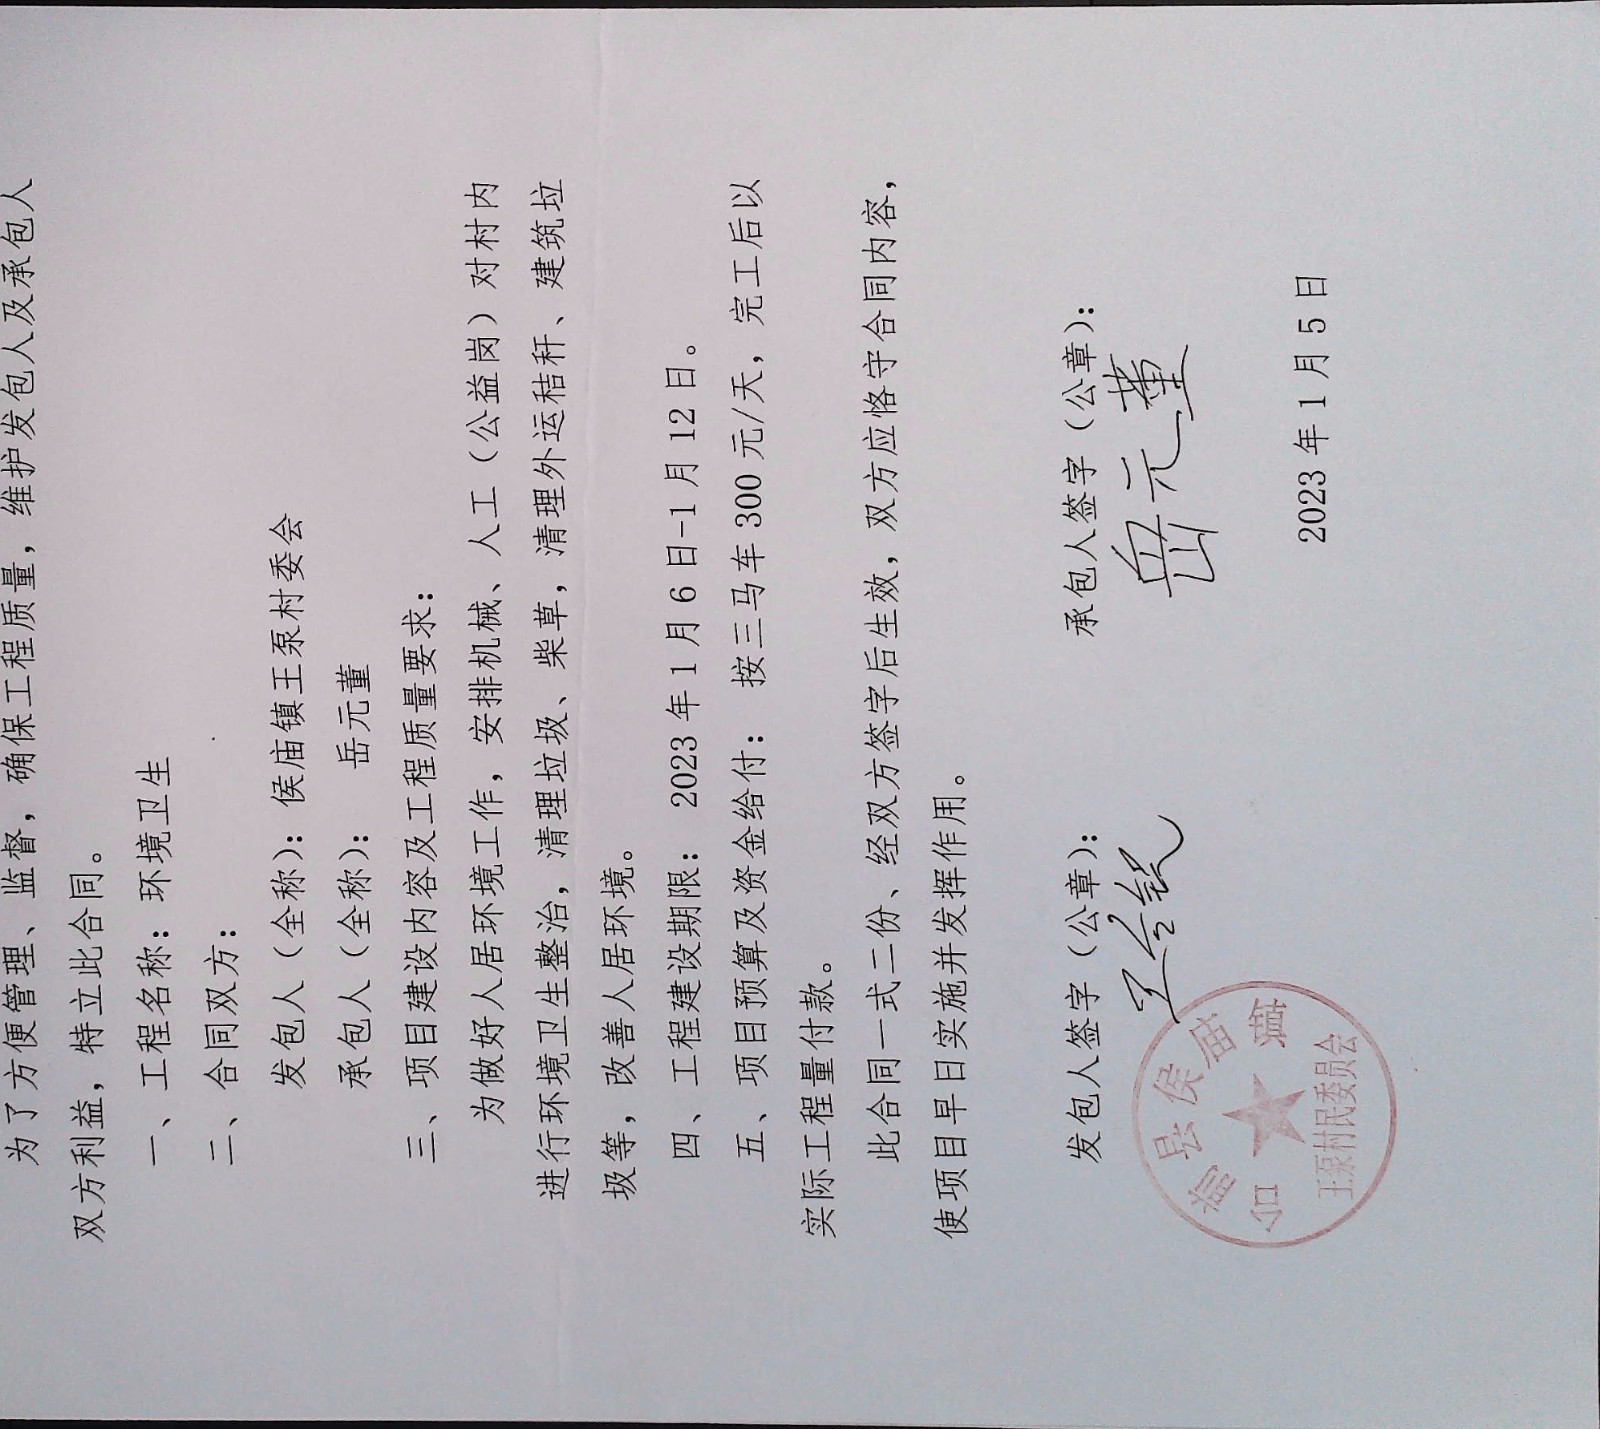 为了方便管理、监督，确保工程质量，维护发包人及承包人
双方利益，特立此合同。
一、工程名称：环境卫生
二、合同双方：
发包人（全称）：侯庙镇王泵村委会
承包人（全称）： 岳元董
三、项目建设内容及工程质量要求：
为做好人居环境工作，安排机械、人工（公益岗）对村内
进行环境卫生整治，清理垃圾、柴草，清理外运秸秆、建筑垃
圾等，改善人居环境。
四、工程建设期限： 2023年1月6日-1月12日。
五、项目预算及资金给付： 按三马车300元/天，完工后以
实际工程量付款。
此合同一式二份、经双方签字后生效，双方应恪守合同内容，
使项目早日实施并发挥作用。
发包人签字（公章）： 承包人签字（公章）：
岳元董
台前县侯庙镇
王泵村民委员会
2023年1月5日